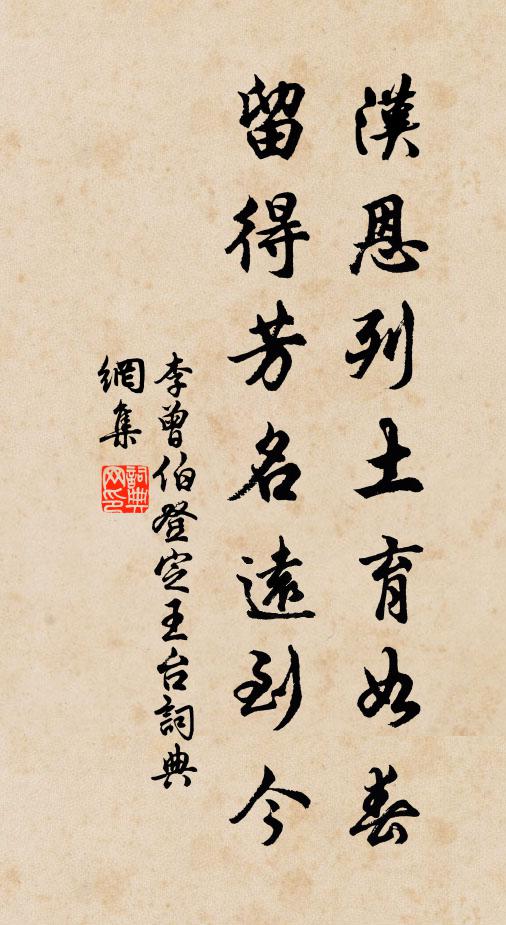 漢恩列土育如春
留得芳名遠到今
李曾伯登定王台詞典
網集
詞典
网印